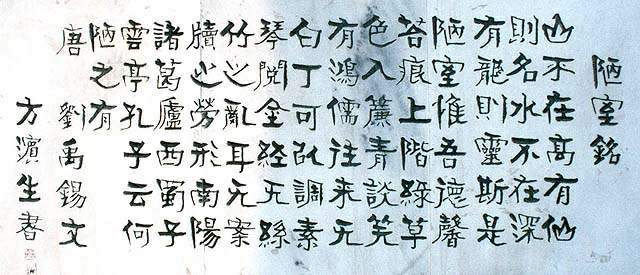 陋室銘
山不在高有仙
則名水不在深
有龍則靈斯是
陋室惟吾德馨
苔痕上階綠草
色入簾青談笑
有鴻儒往來无
白丁可以調素
琴閱金經无絲
竹之亂耳无案
牘之勞形南陽
諸葛廬西蜀子
雲亭孔子云何
陋之有
唐 劉禹錫文
方濱生書